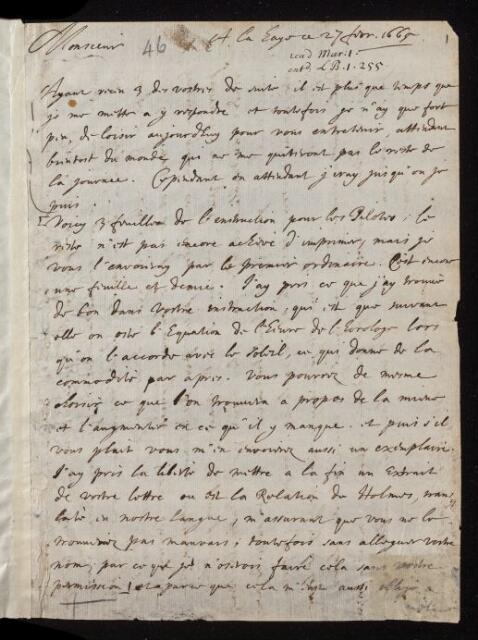 Monsieur 46 A la Haye ce 27 fevr. 1665 1
read Mar: 1.
entd LB. 1. 255
Ayant receu 3 des vostres de suite il est plus que temps que
je me mette a y respondre et toutefois je n'ay que fort
peu de loisir aujourdhuy pour vous entretenir, attendant
bientost du monde, qui ne me quitteront pas le reste de
la journee. Cependant en attendant j'iray jusqu'ou je
puis.
Voicy 3 feuilles de l'instruction pour les Pilotes; le
reste n'est pas encore achevè d'imprimer, mais je
vous l'envoieray par le premier ordinaire. C'est encore
une feuille et demie. J'ay pris ce que j'ay trouvè
de bon dans vostre instruction, qui est que suivant
elle on oste l'Equation de l'Heure de l'horologe lors
qu'on l'accorde avec le soleil, ce qui donne de la
commoditè par apres. Vous pourrez de mesme
choisir ce que l'on trouvera a propos de la mienne
et l'augmenter en ce qu'il y manque. et puis s'il
vous plait vous m'en envoierez aussi un exemplaire.
J'ay pris la libertè de mettre a la fin un Extrait
de vostre lettre ou est la Relation de Holmes, trans
latè en nostre langue, m'assurant que vous ne le
trouverez pas mauvais; toutefois sans alleguer vostre
nom, par ce que je n'oserois faire cela sans vostre
permission, et a parce que cela m'eust aussi obligè a